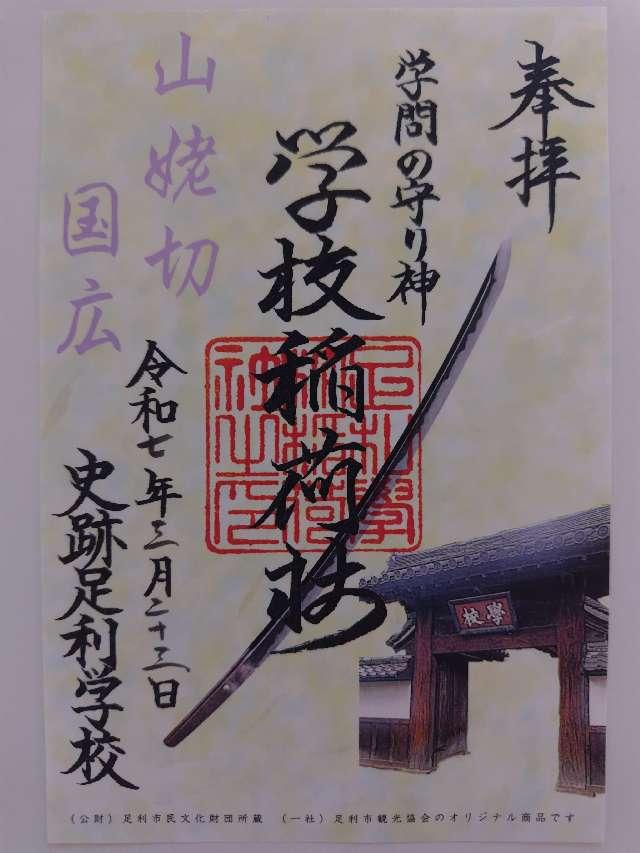 奉拝
学問の守り神
学校稲荷社
山姥切
国広
令和七年三月二十三日
史跡足利学校
學校
(公財)足利市民文化財団所蔵 (一社)足利市観光協会のオリジナル商品です